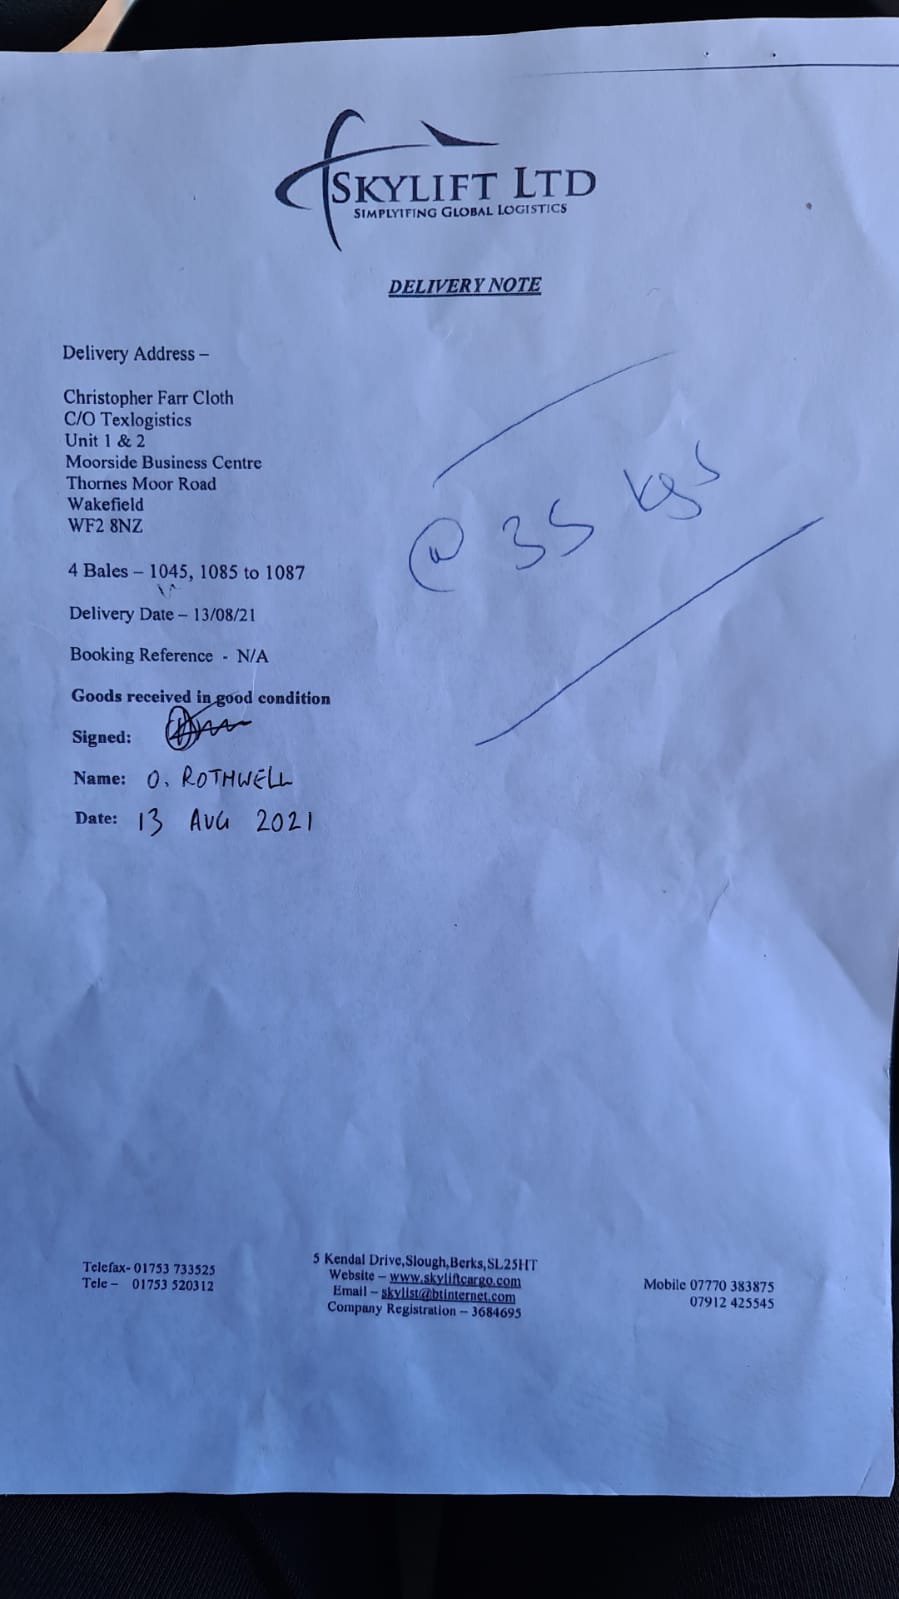 SKYLIFT LTD
SIMPLYIFING GLOBAL LOGISTICS
DELIVERY NOTE
Delivery Address –
Christopher Farr Cloth
C/O Texlogistics
Unit 1 & 2
Moorside Business Centre
Thornes Moor Road
Wakefield
WF2 8NZ
@ 35 kgs
4 Bales – 1045, 1085 to 1087
Delivery Date – 13/08/21
Booking Reference - N/A
Goods received in good condition
Signed:
Name: O. ROTHWELL
Date: 13 AUG 2021
Telefax- 01753 733525
Tele – 01753 520312
5 Kendal Drive,Slough,Berks,SL25HT
Website – www.skyliftcargo.com
Email – skylist@btinternet.com
Company Registration – 3684695
Mobile 07770 383875
07912 425545